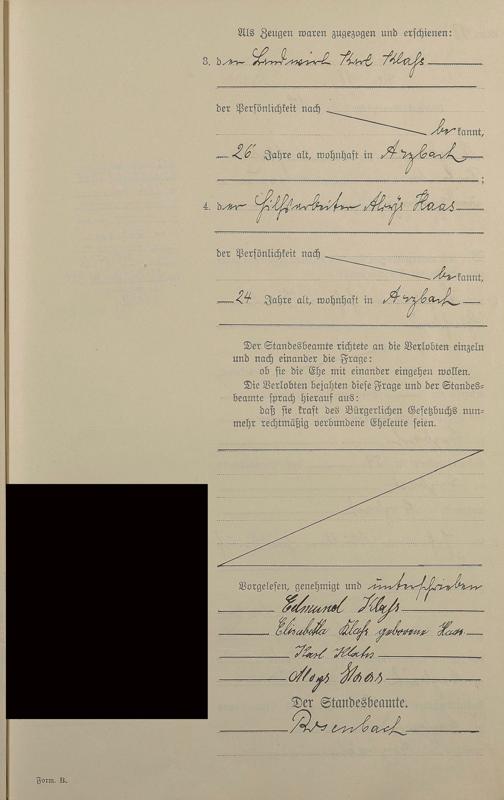 Als Zeugen waren zugezogen und erschienen:
3. der Landwirt Karl Klaß
der Persönlichkeit nach
bekannt,
26 Jahre alt, wohnhaft in Arzbach
;
4. der Hilfsarbeiter Aloys Haas
der Persönlichkeit nach
bekannt,
24 Jahre alt, wohnhaft in Arzbach
Der Standesbeamte richtete an die Verlobten einzeln
und nach einander die Frage:
ob sie die Ehe mit einander eingehen wollen.
Die Verlobten bejahten diese Frage und der Standes-
beamte sprach hierauf aus:
daß sie kraft des Bürgerlichen Gesetzbuchs nun-
mehr rechtmäßig verbundene Eheleute seien.
Vorgelesen, genehmigt und unterschrieben
Edmund Klaß
Elisabetha Klaß geborene Haas
Karl Klaß
Aloys Haas
Der Standesbeamte.
Rosenbach
Form. B.